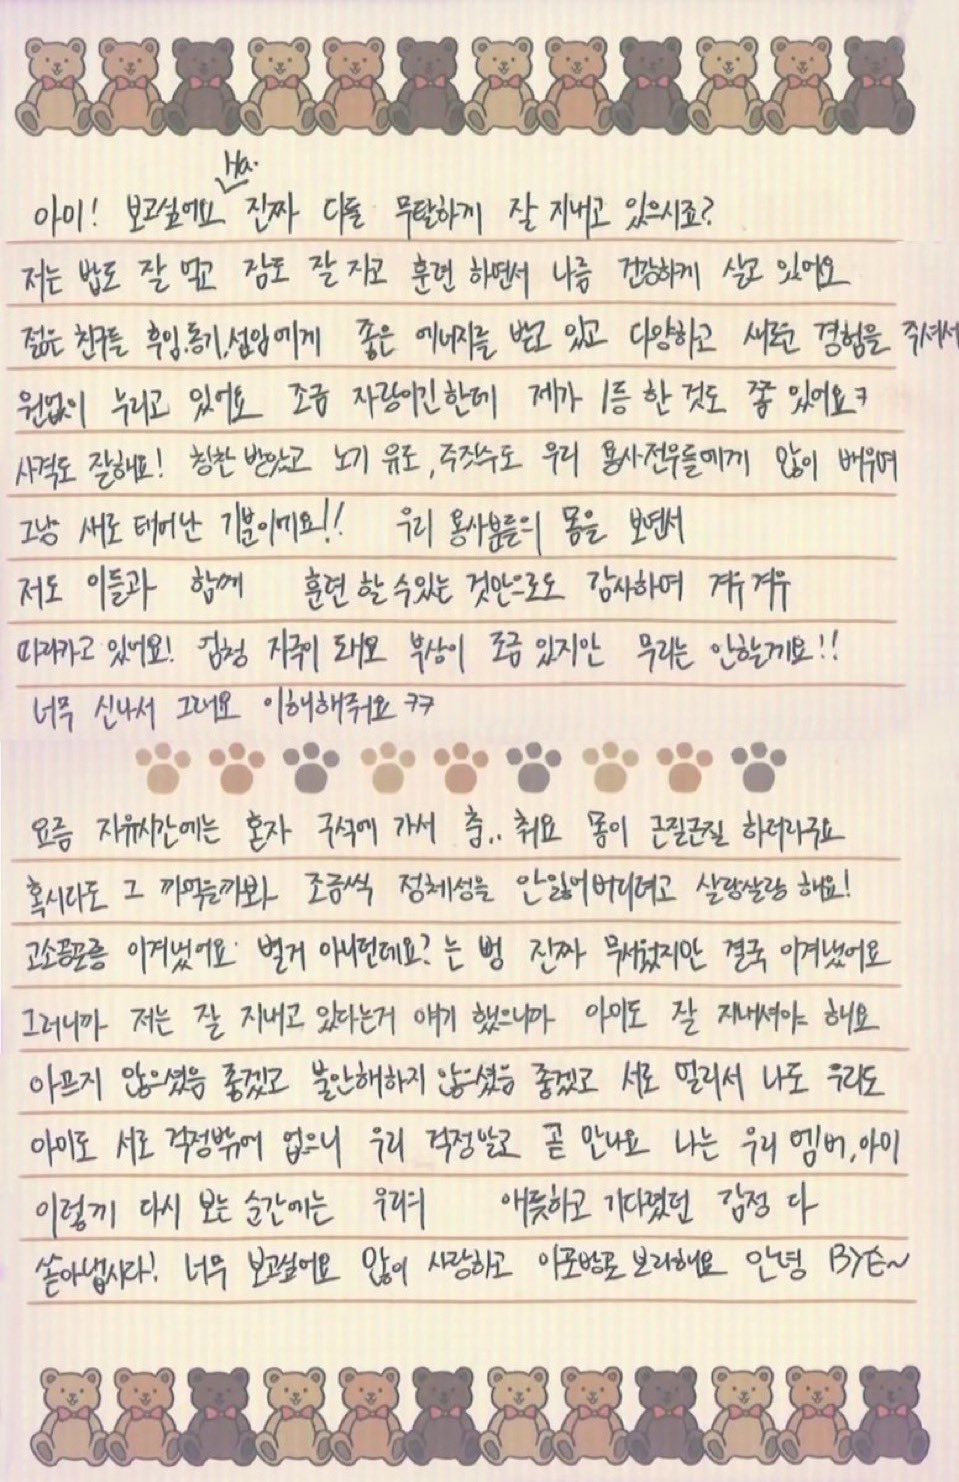 Ha.
아미! 보고싶어요 진짜 다들 무탈하게 잘 지내고 있으시죠?
저는 밥도 잘 먹고 잠도 잘 자고 훈련 하면서 나름 건강하게 살고 있어요
젊은 친구들 후임,동기,선임에게 좋은 에너지를 받고 있고 다양하고 새로운 경험을 주셔서
원없이 누리고 있어요 조금 자랑이긴한데 제가 1등 한 것도 쫌 있어요ㅋ
사격도 잘해요! 칭찬 받았고 노기 유도,주짓수도 우리 용사전우들에게 많이 배우며
그냥 새로 태어난 기분이에요!! 우리 용사분들의 몸을 보면서
저도 이들과 함께 훈련 할 수있는 것만으로도 감사하며 겨우겨우
따라가고 있어요! 엄청 자극이 돼요 부상이 조금 있지만 무리는 안할게요!!
너무 신나서 그래요 이해해줘요 ㅋㅋ
요즘 자유시간에는 혼자 구석에 가서 춤.. 춰요 몸이 근질근질 하더라구요
혹시라도 그 까먹을까봐 조금씩 정체성을 안잃어버리려고 살랑살랑 해요!
고소공포증 이겨냈어요 별거 아니던데요? 는 뻥 진짜 무서웠지만 결국 이겨냈어요
그러니까 저는 잘 지내고 있다는거 얘기 했으니까 아미도 잘 지내셔야 해요
아프지 않으셨음 좋겠고 불안해하지 않으셨음 좋겠고 서로 멀리서 나도 우리도
아미도 서로 걱정밖에 없으니 우리 걱정말고 곧 만나요 나는 우리 멤버,아미
이렇게 다시 보는 순간에는 우리의 애틋하고 기다렸던 감정 다
쏟아냅시다! 너무 보고싶어요 많이 사랑하고 아포방포 보라해요 안녕